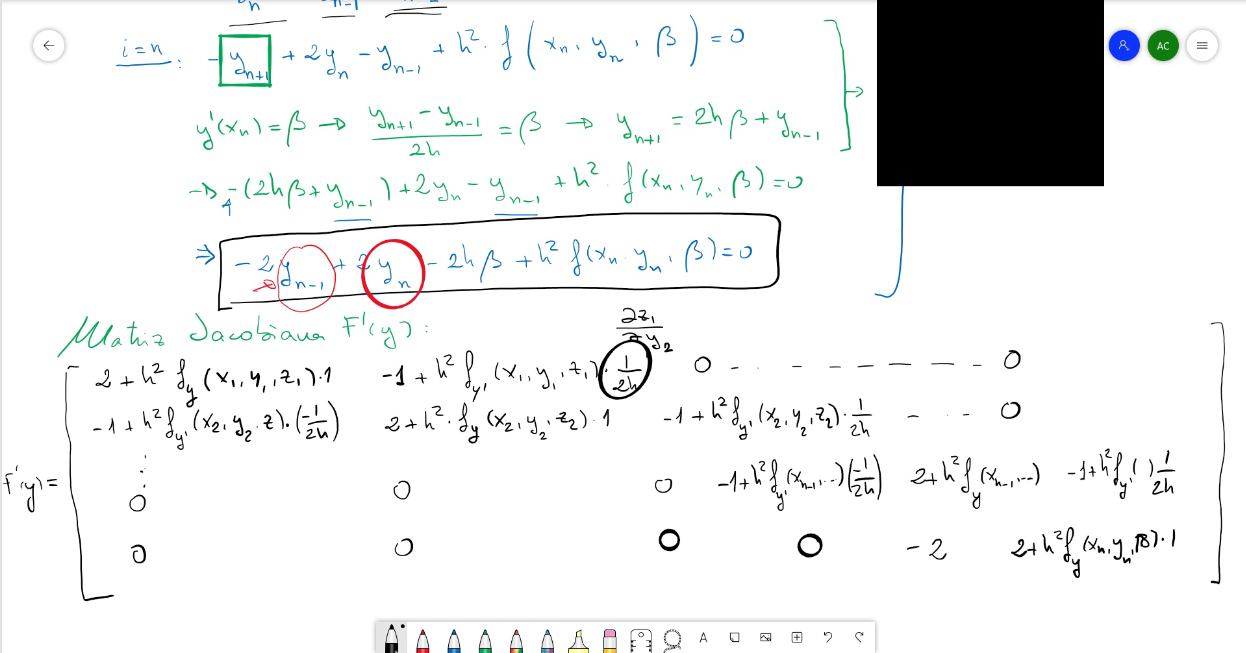 i=n : - y_{n+1} + 2y_n - y_{n-1} + h². f(x_n, y_n, β) = 0
y'(x_n) = β → \frac{y_{n+1} - y_{n-1}}{2h} = β → y_{n+1} = 2hβ + y_{n-1}
→ -(2hβ + y_{n-1}) + 2y_n - y_{n-1} + h². f(x_n, y_n, β) = 0
⇒ -2y_{n-1} + 2y_n - 2hβ + h² f(x_n, y_n, β) = 0
Matriz Jacobiana F'(y) :
\frac{∂z_1}{∂y_2}
2+h² f_y(x_1, y_1, z_1).1 -1+h² f_{y'}(x_1, y_1, z_1).\frac{1}{2h} 0 . - - - - - - 0
-1+h² f_{y'}(x_2, y_2, z).(\frac{-1}{2h}) 2+h². f_y(x_2, y_2, z_2).1 -1+h² f_{y'}(x_2, y_2, z_2).\frac{1}{2h} - - - 0
F'(y) = ⋮ 0 0 0 -1+h² f_{y'}(x_{n-1}, ...)(\frac{-1}{2h}) 2+h² f_y(x_{n-1}, ...) -1+h² f_{y'}( )\frac{1}{2h}
0 0 0 0 -2 2+h² f_y(x_n, y_n, β).1
AC
A